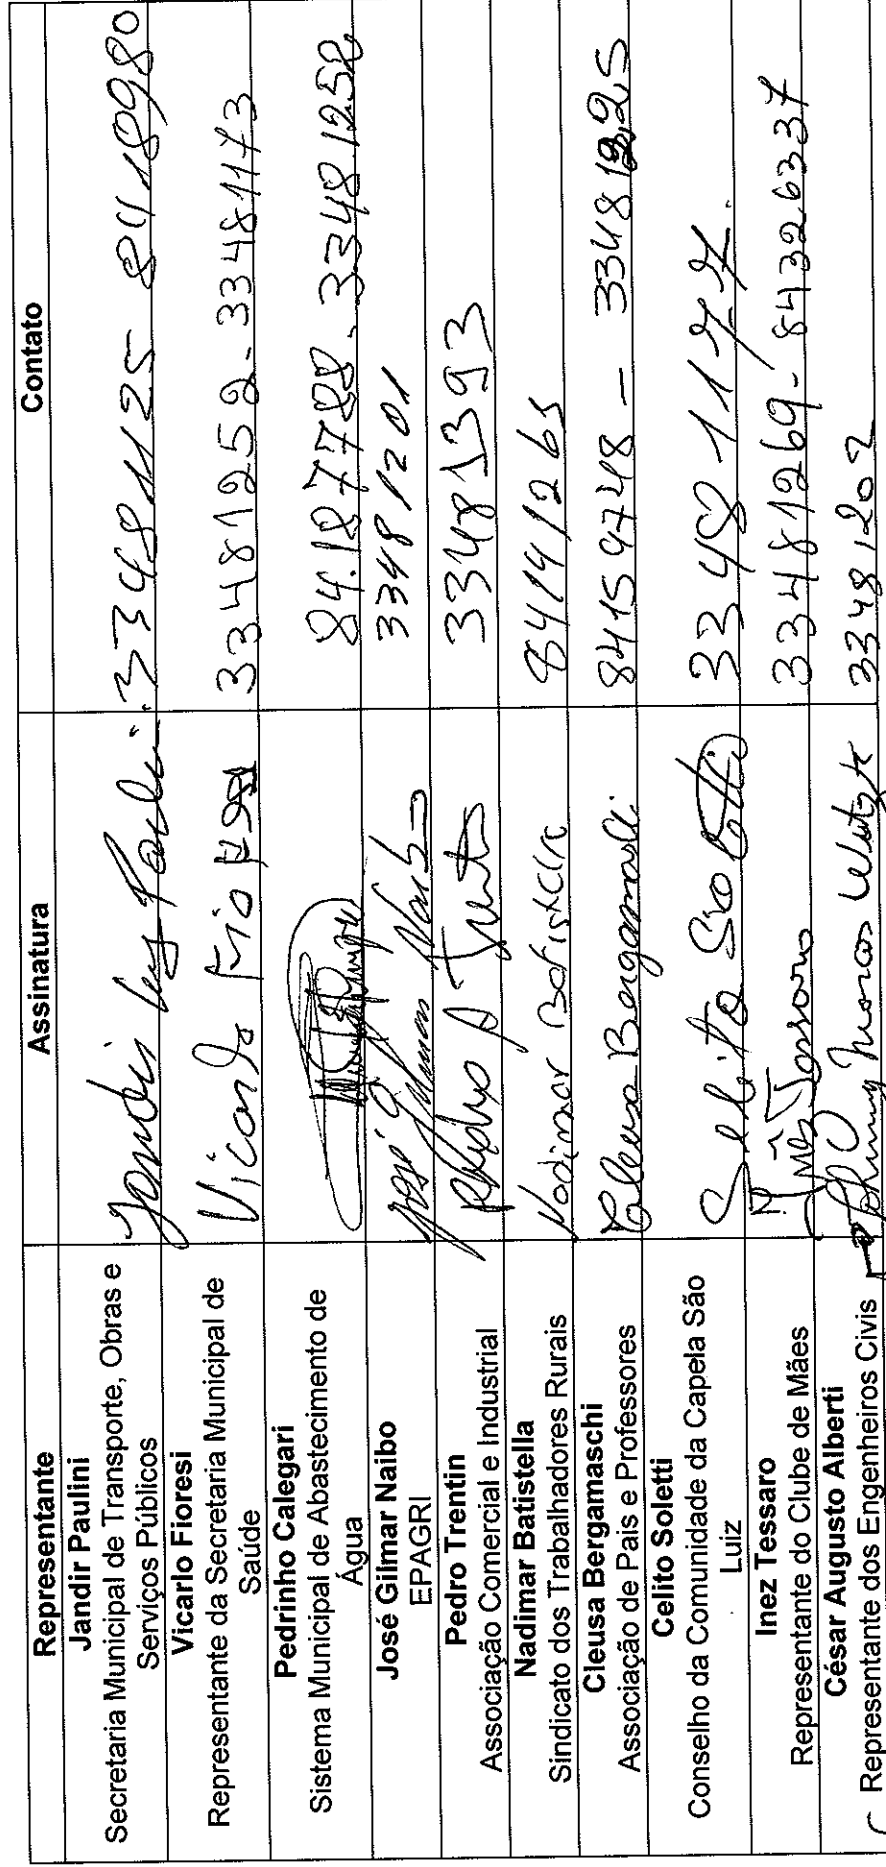 Representante Assinatura Contato
Jandir Paulini
Secretaria Municipal de Transporte, Obras e
Serviços Públicos
Jandir Luiz Paulini 33481125 - 84189980
Vicarlo Fioresi
Representante da Secretaria Municipal de
Saúde
Vicarlo Fioresi 33481252 - 33481173
Pedrinho Calegari
Sistema Municipal de Abastecimento de
Água
84.187788 - 33481252
José Gilmar Naibo
EPAGRI
José Gilmar Naibo 33481201
Pedro Trentin
Associação Comercial e Industrial
Pedro A Trentin 33481393
Nadimar Batistella
Sindicato dos Trabalhadores Rurais
Nadimar Batistella 84141265
Cleusa Bergamaschi
Associação de Pais e Professores
Cleusa Bergamaschi 84159748 - 33481225
Celito Soletti
Conselho da Comunidade da Capela São
Luiz
33481177.
Inez Tessaro
Representante do Clube de Mães
Inês Tessaro 33481269 - 84326337
César Augusto Alberti
Representante dos Engenheiros Civis
Marcos 33481202